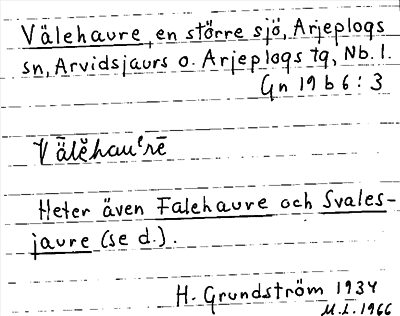 Välehaure, en större sjö, Arjeplogs
sn, Arvidsjaurs o. Arjeplogs tg, Nb. l.
Gn 19 b 6 : 3
V̄älĕhauᵉrē
Heter även Falehaure och Svales-
jaure (se d.).
H. Grundström 1934
M.I. 1966